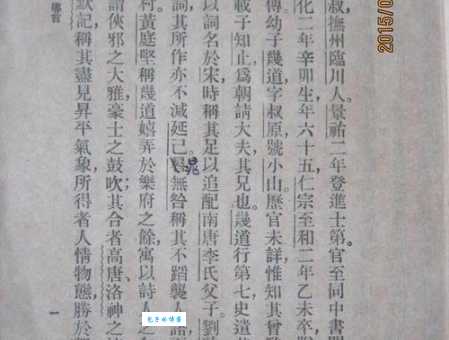 叔撫州臨川人景祐二年登進士第官至同中書門
化二年辛卯生年六十五仁宗至和二年乙未卒
傳幼子幾道字叔原號小山歷官未詳惟知其曾
載子知止為朝請大夫其兄也幾道行第七史遺
以詞名於宋時稱其足以追配南唐李氏父子劉
詞其所作亦不減延己晁無咎稱其不蹈襲人語
村黃庭堅稱幾道嬉弄於樂府之餘寓以詩人之
謂俠邪之大雅豪士之鼓吹其合者高唐洛神之
默記稱其盡見昇平氣象所得者人情物態勝於
一
2015/0